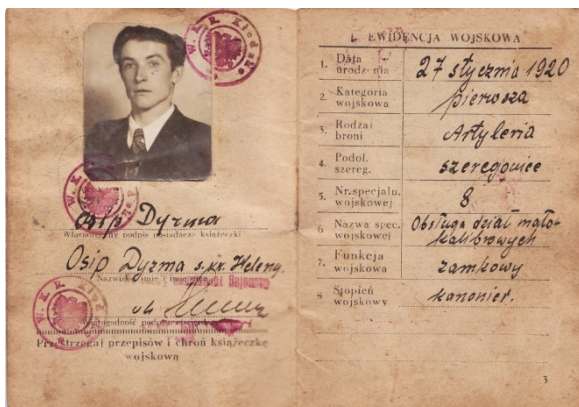 W. K. R. Kłodzko
Osip Dyrma
Własnoręczny podpis posiadacza książeczki
Osip Dyrma s. Heleny.
Nazwisko, imię i imię
Rejonowy
Wiarygodność podpisu
Przestrzegaj przepisów i chroń książeczkę
wojskową
EWIDENCJA WOJSKOWA
1. Data urodzenia 27 stycznia 1920
2. Kategoria wojskowa pierwsza
3. Rodzaj broni Artyleria
4. Podof. szereg. szeregowiec
5. Nr. specjaln. wojskowej 8
6 Nazwa spec. wojskowej Obsługa dział mało-
kalibrowych
7. Funkcja wojskowa zamkowy
8 Stopień wojskowy kanonier.
3